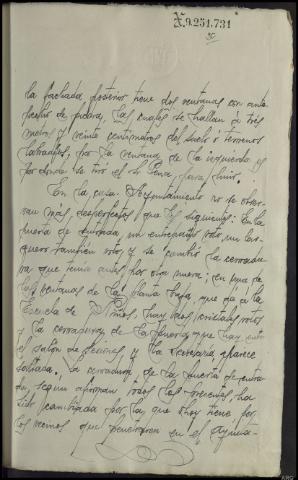 X.9.251.731
la fachada posterior tiene dos ventanas con ante
pechos de piedra, las cuales se hallan a tres
metros y veinte centimetros del suelo o terrenos
labradios, por la ventana de la izquierda es
por donde se tiró el Sr. para huir.
En la casa-Ayuntamiento no se obser-
van más desperfectos que los siguientes: En la
puerta de entrada, un entrepaño roto, un lar-
guero también roto, y se cambió la cerradu-
ra que tenia antes por otra nueva; en una de
las ventanas de la planta baja, que da a la
Escuela de Niños, hay dos cristales rotos
y la cerradura de la puerta que hay entre
el salón de sesiones y la Secretaria, aparece
soltada. La cerradura de la puerta de entra-
da, segun afirman todos los presentes, ha
sido cambiada por la que hoy tiene por
los vecinos que penetraron en el Ayunta-